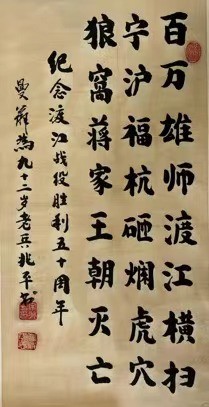 百万雄师渡江横扫
宁沪福杭砸烂虎穴
狼窝蒋家王朝灭亡
纪念渡江战役胜利五十周年
九十二岁老兵兆平书